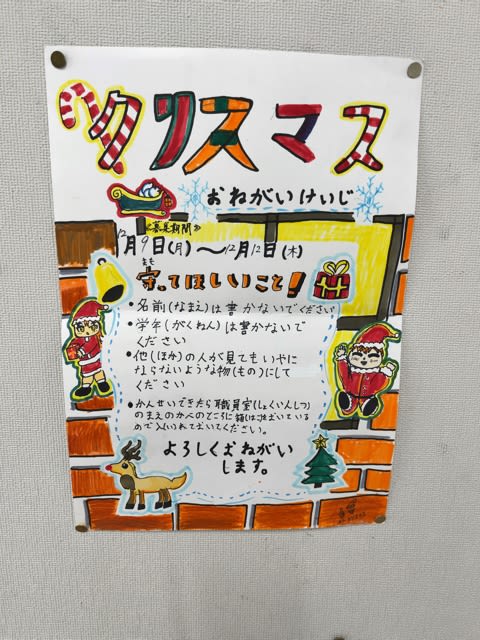 クリスマス
おねがいけいじ
《募集期間》
12月9日(月)～12月12日(木)
守ってほしいこと!
まも
•名前(なまえ)は書かないでください
•学年(がくねん)は書かないで
ください
•他(ほか)の人が見てもいやに
ならないような物(もの)にして
ください
•かんせいできたら職員室(しょくいんしつ)
のまえのかべのところに箱がはってあるので入れておいてください。
よろしくおねがい
します。